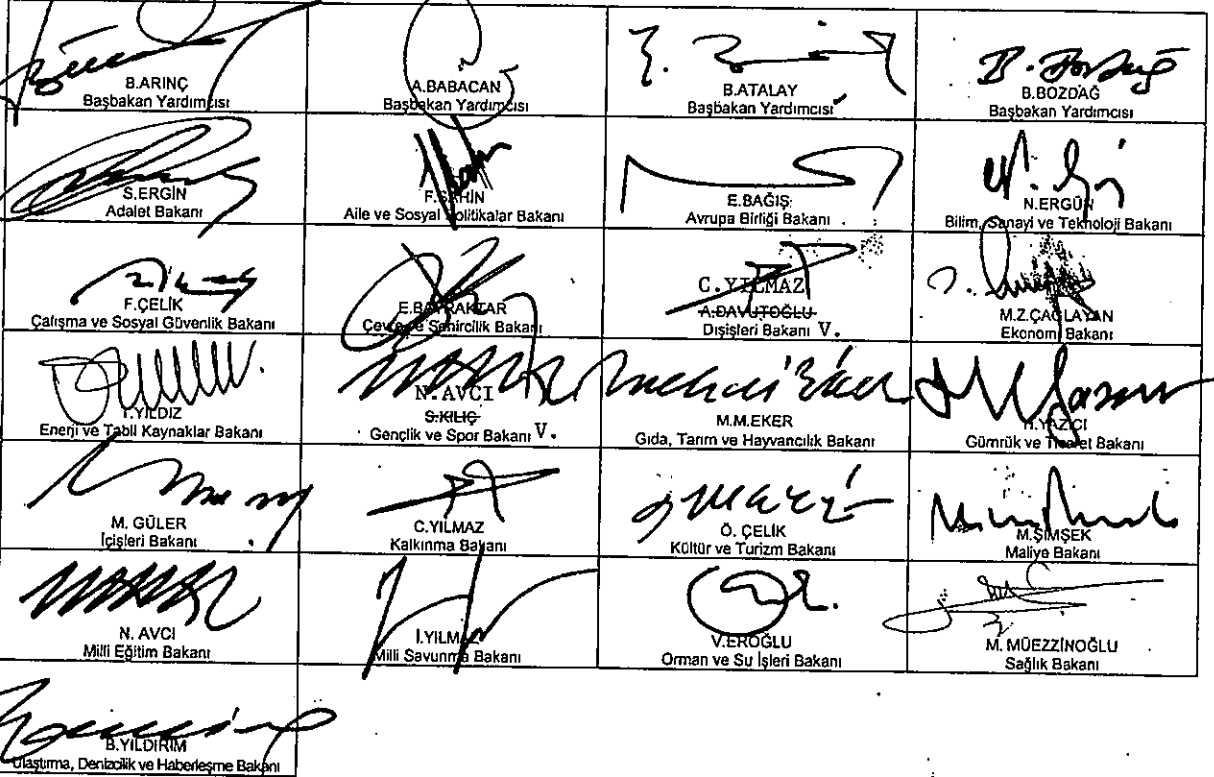 B.ARINÇ
Başbakan Yardımcısı
A.BABACAN
Başbakan Yardımcısı
B.ATALAY
Başbakan Yardımcısı
B.BOZDAĞ
Başbakan Yardımcısı
S.ERGİN
Adalet Bakanı
F.ŞAHİN
Aile ve Sosyal Politikalar Bakanı
E.BAĞIŞ
Avrupa Birliği Bakanı
N.ERGÜN
Bilim, Sanayi ve Teknoloji Bakanı
F.ÇELİK
Çalışma ve Sosyal Güvenlik Bakanı
E.BAYRAKTAR
Çevre ve Şehircilik Bakanı
C.YILMAZ
A.DAVUTOĞLU
Dışişleri Bakanı V.
M.Z.ÇAĞLAYAN
Ekonomi Bakanı
T.YILDIZ
Enerji ve Tabii Kaynaklar Bakanı
N.AVCI
S.KILIÇ
Gençlik ve Spor Bakanı V.
M.M.EKER
Gıda, Tarım ve Hayvancılık Bakanı
H.YAZICI
Gümrük ve Ticaret Bakanı
M. GÜLER
İçişleri Bakanı
C.YILMAZ
Kalkınma Bakanı
Ö. ÇELİK
Kültür ve Turizm Bakanı
M.ŞİMŞEK
Maliye Bakanı
N. AVCI
Milli Eğitim Bakanı
İ.YILMAZ
Milli Savunma Bakanı
V.EROĞLU
Orman ve Su İşleri Bakanı
M. MÜEZZİNOĞLU
Sağlık Bakanı
B.YILDIRIM
Ulaştırma, Denizcilik ve Haberleşme Bakanı